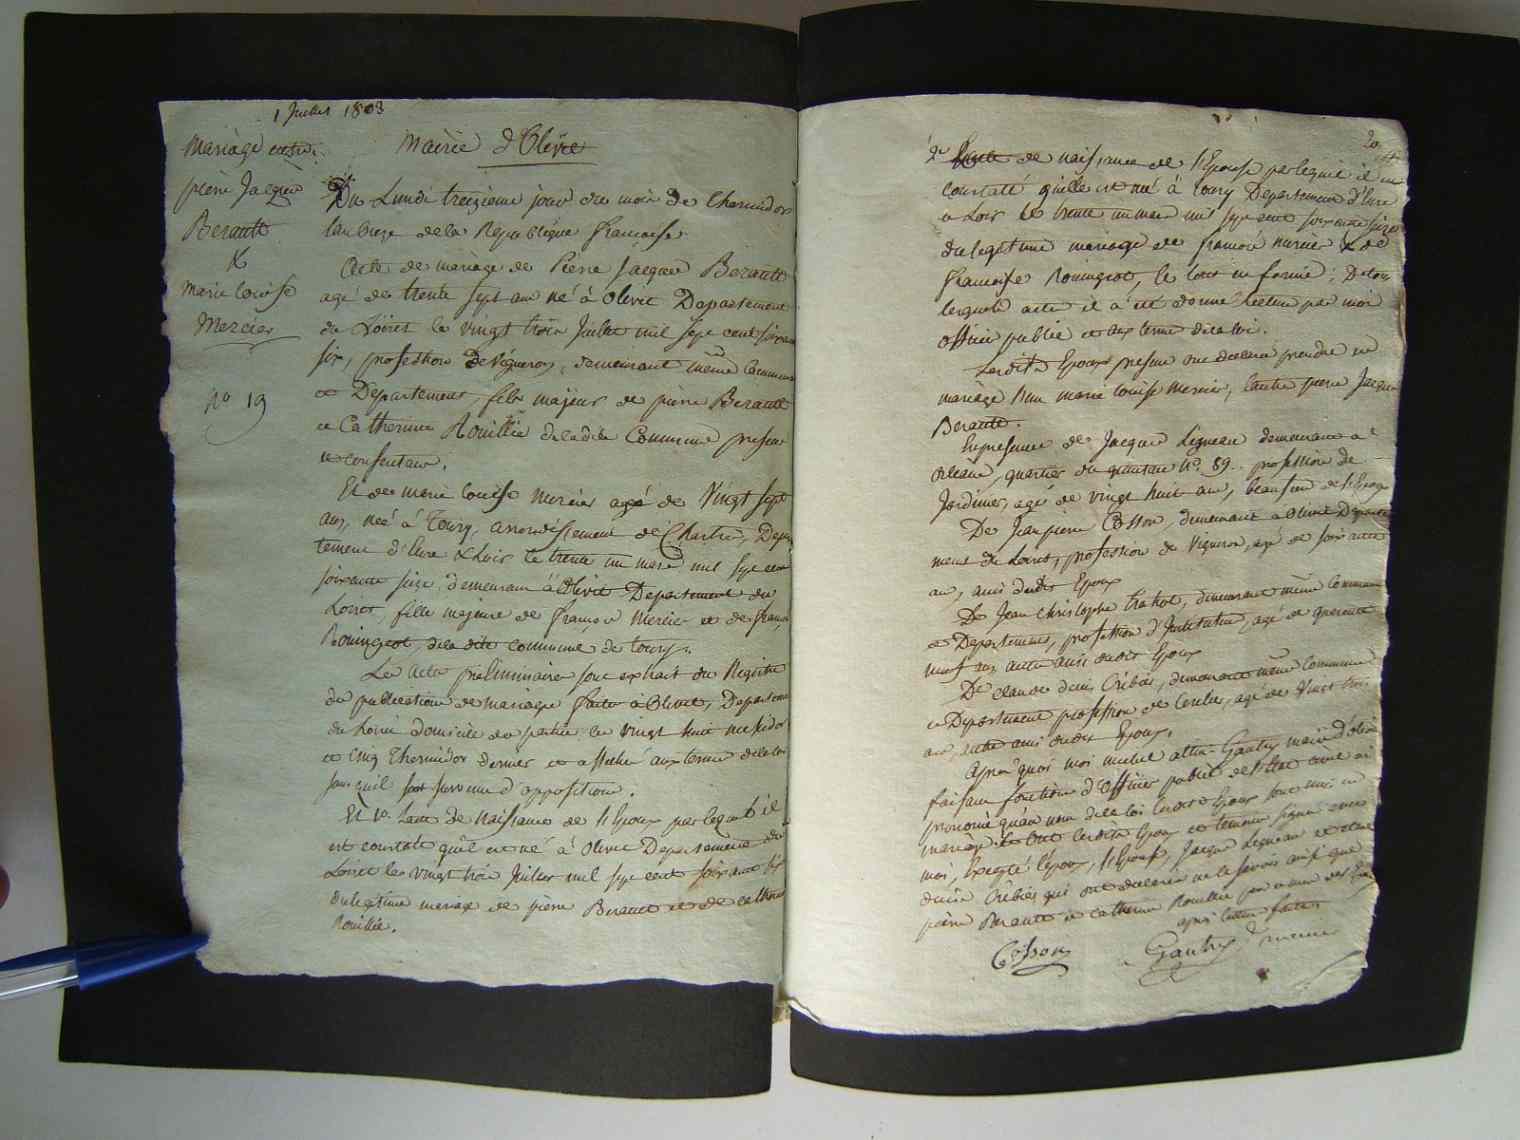 1 Juillet 1803
Mariage entre
pierre Jacques
Berault
&
Marie louise
Mercier
no 19
Mairie d'Olivet
Du Lundi treizieme jour du mois de Thermidor
lan onze de la Republique francaise
Acte de mariage de Pierre Jacques Berault
agé de trente sept ans né à Olivet Departement
du Loiret le vingt trois Juillet mil sept cent soixante
six, profession de Vigneron, demeurant même Commune
et Departement, fils majeur de pierre Berault
et Catherine Rouillie de ladite Commune present
et consentans.
Et de marie louise mercier agé de Vingt sept
ans, née à Toury, arrondissement de Chartre, Depar
tement d'Eure & Loir le trente un mars mil sept cent
soixante seize, demeurant à Olivet Departement du
Loiret, fille majeure de françois Mercier et de françoise
Romingeot, de la dite commune de toury.
Les Actes preliminaires sont extrait du Registre
de publication de mariage faite à Olivet, Departement
du Loiret domicile des parties le vingt huit messidor
et cinq Thermidor dernier et affiché aux termes de la loi
sans quil soit survenu d'opposition.
Et 1o. Lacte de Naissance de l'Epoux par lequel il
est constaté qu'il est né à Olivet Departement du
Loiret le vingt trois Juillet mil sept cent soixante six
du legitime mariage de pierre Berault et de catherine
Rouillie.
20
2o Lacte de naissance de l'Epouse par lequel il est
constaté qu'elle est né à toury Departement d'Eure
et Loir le trente un mars mil sept cent soixante seize
du legitime mariage de francois mercier & de
francoise Romingeot, le tout en forme; De tous
lesquels actes il a été donné lecture par moi
officier public et aux termes de la loi.
Lesdits Epoux presens ont declaré prendre en
mariage l'un marie louise Mercier, l'autre pierre Jacques
Berault.
En presence de Jacque Ligneau demeurant à
Orleans, quartier du no. 89. profession de
Jardinier, agé de vingt huit ans, beaufrere de l'Epoux
De Jean pierre Cosson, demeurant à Olivet Departe
ment du Loiret, profession de Vigneron, agé de soixante
ans, ami dudit Epoux
De Jean christophe demeurant même commune
et Departement, profession d'Instituteur, agé de quarante
neuf ans autre ami dudit Epoux
De claude denis Crebier, demeurant même commune
et Departement profession de agé de Vingt trois
ans, autre ami dudit Epoux.
Apres quoi moi michel Gautry maire d'olivet
faisant fonction d'officier public de l'Etat civil ai
prononcé qu'au nom de la loi lesdits Epoux sont unis en
mariage et ont lesdits Epoux et temoins signé avec
moi, Excepté l'Epoux, l'Epouse, Jacque Ligneau et claude
denis Crebier qui ont declaré ne le savoir ainsi que
pierre Berault et Catherine Rouillie pere et mere de l'Epoux
apres lecture faite.
Cosson Gautry